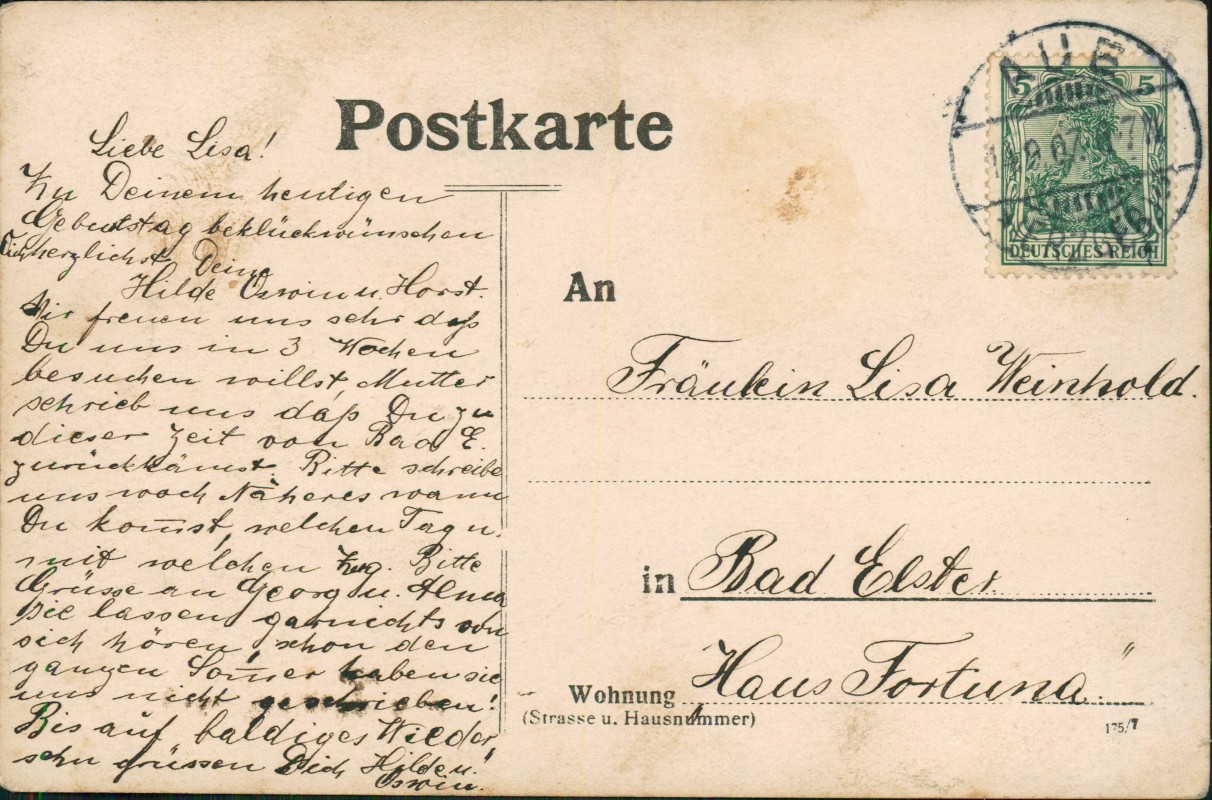 Postkarte
Liebe Lisa!
Zu Deinem heutigen
Geburtstag beklückwünschen
Dich herzlichst Deine
Hilde Oswin u. Horst.
Wir freuen uns sehr daß
Du uns in 3 Wochen
besuchen willst, Mutter
schrieb uns daß Du zu
dieser Zeit von Bad E.
zurückkämst. Bitte schreibe
uns noch Näheres wann
Du kom̅st, welchen Tag u.
mit welchen Zug. Bitte
Grüsse an Georg u. Alma
Sie lassen garnichts von
sich hören, schon den
ganzen Som̅er haben sie
uns nicht geschrieben!
Bis auf baldiges Wieder,
sehn grüssen Dich Hilde u.
Oswin.
AUE
9.07. 7
5 5
DEUTSCHES REICH
An
Fräulein Lisa Weinhold.
in Bad Elster
Wohnung „Haus Fortuna“
(Strasse u. Hausnummer)
175/7